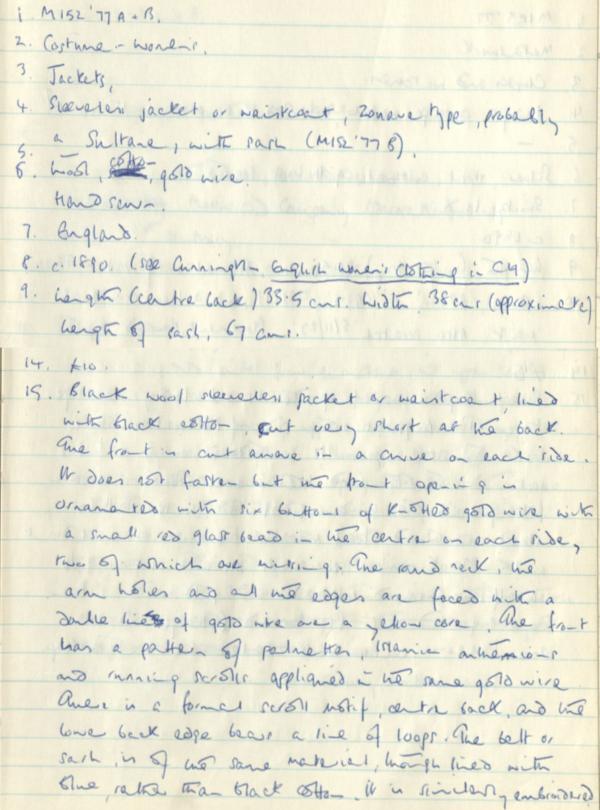 1 M152 '77 A + B.
2. Costume - women's.
3. Jackets,
4. Sleeveless jacket or waistcoat, zouave type, probably
a Sultane, with sash (M152 '77 B).
5.
6. Wool, cotton, gold wire.
Hand sewn.
7. England.
8. c. 1890. (see Cunnington English Women's Clothing in C19)
9. Length (centre back) 35.5 cms. Width 38 cms (approximate)
Length of sash, 67 cms.
14. £10.
15. Black wool sleeveless jacket or waistcoat, lined
with black cotton, cut very short at the back.
The front is cut away in a curve on each side.
It does not fasten but the front opening is
ornamented with six buttons of knotted gold wire with
a small red glass bead in the centre on each side,
two of which are missing. The round neck, the
arm holes and all the edges are faced with a
double line of gold wire over a yellow core. The front
has a pattern of palmettes, Islamic anthemions
and running scrolls appliqued in the same gold wire
There is a formal scroll motif, centre back, and the
lower back edge bears a line of loops. The belt or
sash is of the same material, though lined with
blue, rather than black cotton. It is similarly embroidered